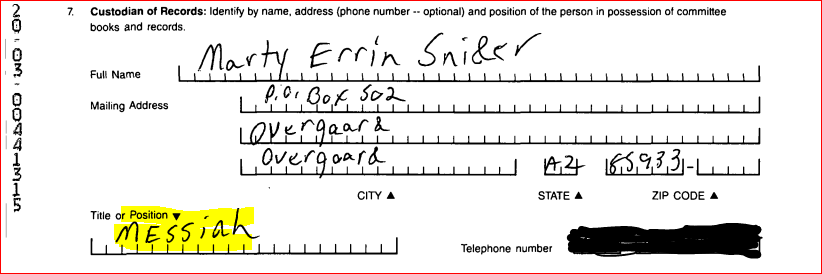 20-03-00441315
7. Custodian of Records: Identify by name, address (phone number -- optional) and position of the person in possession of committee
books and records.
Full Name Marty Errin Snider
Mailing Address P.O. Box 502
Overgaard
Overgaard AZ 85933-
CITY ▲ STATE ▲ ZIP CODE ▲
Title or Position ▼
MESSiah
Telephone number